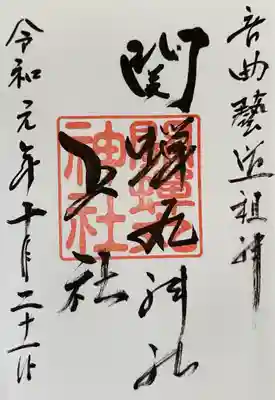 音曲藝道祖神
関蝉丸神社
上社
令和元年十月二十一日
關蟬丸
神社